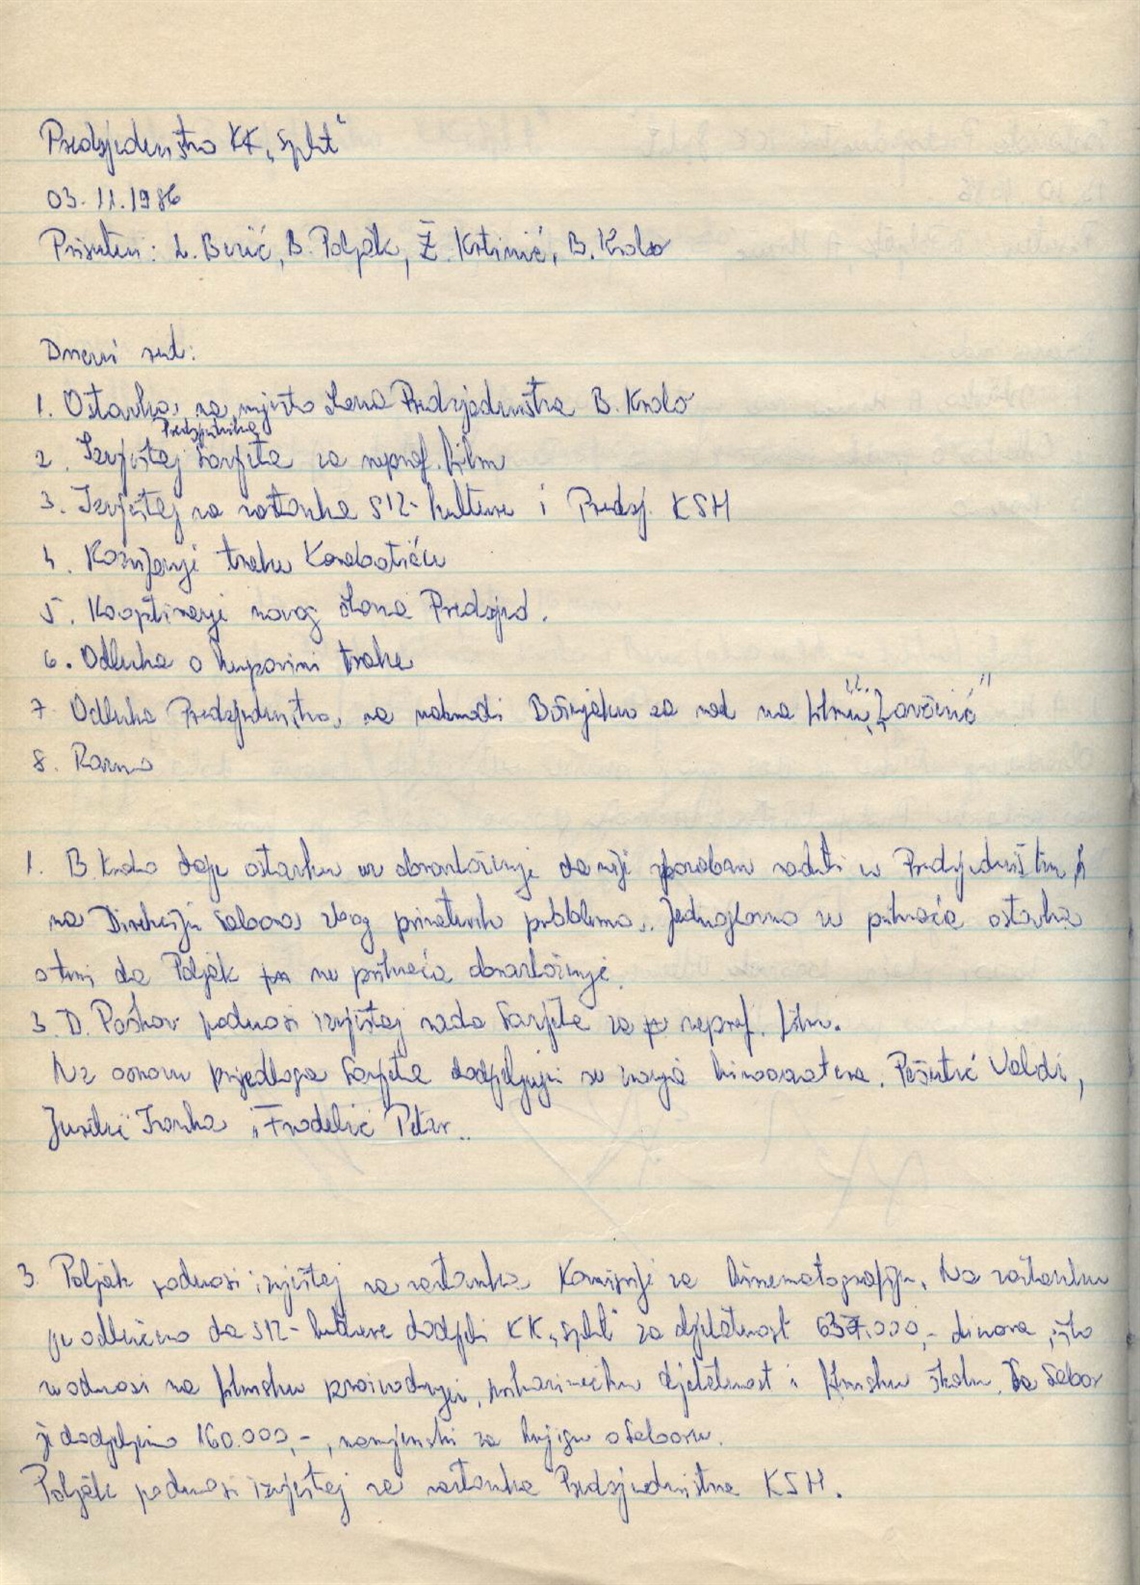 Predsjedništvo KK „Split“
03.11.1986
Prisutni: L. Buzić, B. Poljak, Ž. Krtinić, B. Krolo
Dnevni red:
1. Ostavka, na mjesto člana Predsjedništva B. Krolo
Predsjednika
2. Izvještaj Savjeta za neprof. film
3. Izvještaj sa sastanka SIZ-kulture i Predsj. KSH
4. Razvijanje traku Karabatiću
5. Kooptiranje novog člana Predsjed.
6. Odluka o kupovini trake
7. Odluka Predsjedništva, na naknadi Bošnjaku za rad na filmu „Lavčević“
8. Razno
1. B. Krolo daje ostavku uz obrazloženje da nije sposoban raditi u Predsjedništvu
na Direkciji Sabora, zbog privatnih problema. Jednoglasno se prihvaća ostavka
s tim da Poljak ne prihvaća obrazloženje.
3. D. Poškov podnosi izvještaj rada Savjeta za neprof. film.
Na osnovu prijedloga Savjeta dodjeljuju se zvanja kinoamatera. Pešutić Valdi,
Juretić Ivanka, Fradelić Petar.
3. Poljak podnosi izvještaj sa sastanka Komisije za kinematografiju. Na sastanku
je odlučeno da SIZ-kulture dodjeli KK „Split“ za djelatnost 637.000,- dinara, što
se odnosi na filmsku proizvodnju, prikazivačku djelatnost i filmsku školu. Za Sabor
je dodjeljeno 160.000,-, namjenski za knjigu o Saboru.
Poljak podnosi izvještaj sa sastanka Predsjedništva KSH.